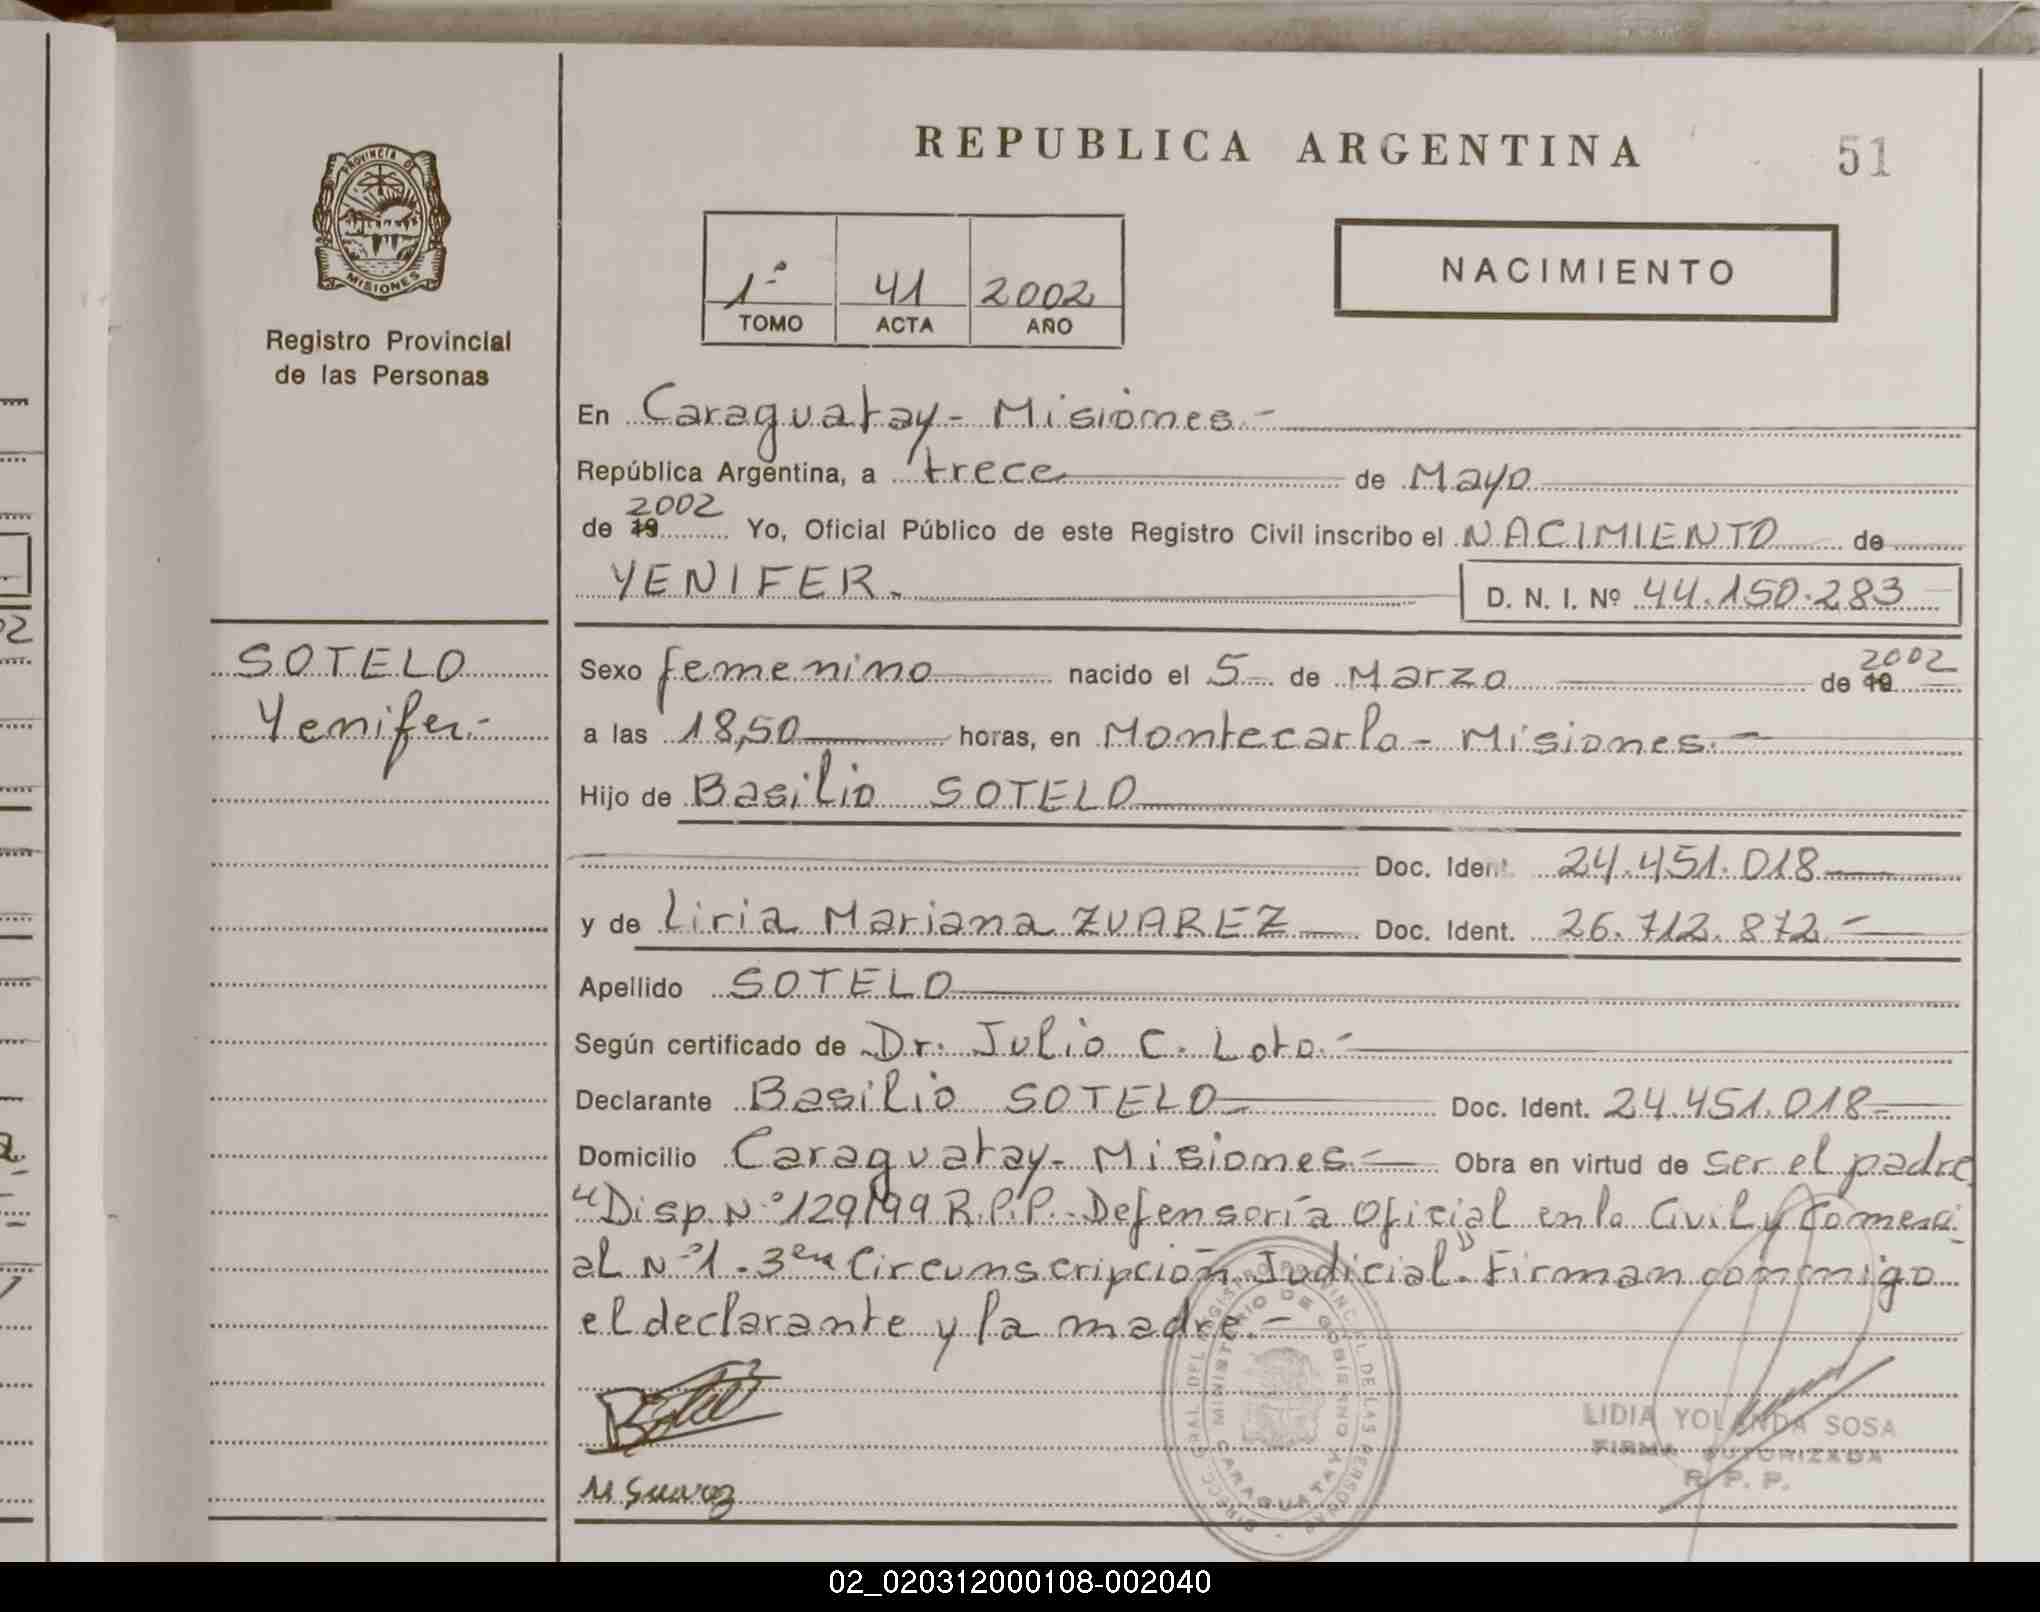 REPUBLICA ARGENTINA
51
PROVINCIA DE
MISIONES
Registro Provincial
de las Personas
1º 41 2002
TOMO ACTA AÑO
NACIMIENTO
En Caraguatay - Misiones.-
República Argentina, a trece de Mayo
de 19 2002 Yo, Oficial Público de este Registro Civil inscribo el NACIMIENTO de
YENIFER. D. N. I. Nº 44.150.283
SOTELO
Yenifer.-
Sexo femenino nacido el 5 de Marzo de 19 2002
a las 18,50 horas, en Montecarlo - Misiones.-
Hijo de Basilio SOTELO
Doc. Ident. 24.451.018
y de Liria Mariana ZUAREZ Doc. Ident. 26.712.872.-
Apellido SOTELO
Según certificado de Dr. Julio C. Loto.-
Declarante Basilio SOTELO Doc. Ident. 24.451.018
Domicilio Caraguatay - Misiones.- Obra en virtud de ser el padre
"Disp. Nº 129/99 R.P.P.- Defensoría Oficial en lo Civil y Comerci
al Nº 1 - 3era Circunscripción Judicial". Firman conmigo
el declarante y la madre.-
M Suarez
DIRECC. GRAL DEL REGISTRO PROVINCIAL DE LAS PERSONAS
MINISTERIO DE GOBIERNO
CARAGUATAY
LIDIA YOLANDA SOSA
FIRMA AUTORIZADA
R. P. P.
02_020312000108-002040